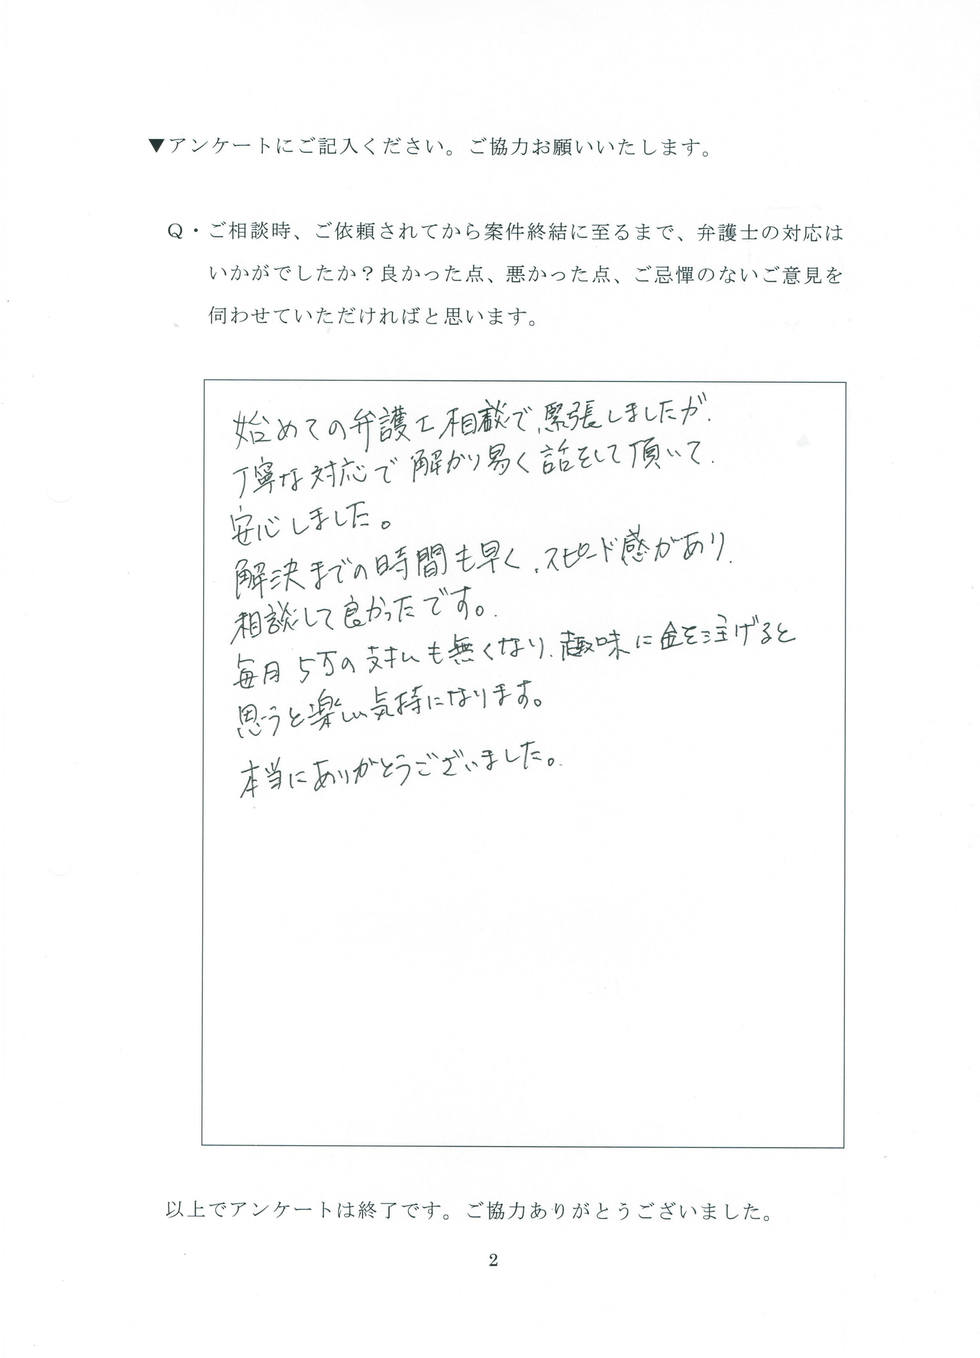 ▼アンケートにご記入ください。ご協力お願いいたします。
Q・ご相談時、ご依頼されてから案件終結に至るまで、弁護士の対応は
いかがでしたか？良かった点、悪かった点、ご忌憚のないご意見を
伺わせていただければと思います。
始めての弁護士相談で、緊張しましたが、
丁寧な対応で解かり易く話をして頂いて、
安心しました。
解決までの時間も早く、スピード感があり、
相談して良かったです。
毎月5万の支払も無くなり、趣味に金を注げると
思うと楽しい気持になります。
本当にありがとうございました。
以上でアンケートは終了です。ご協力ありがとうございました。
2